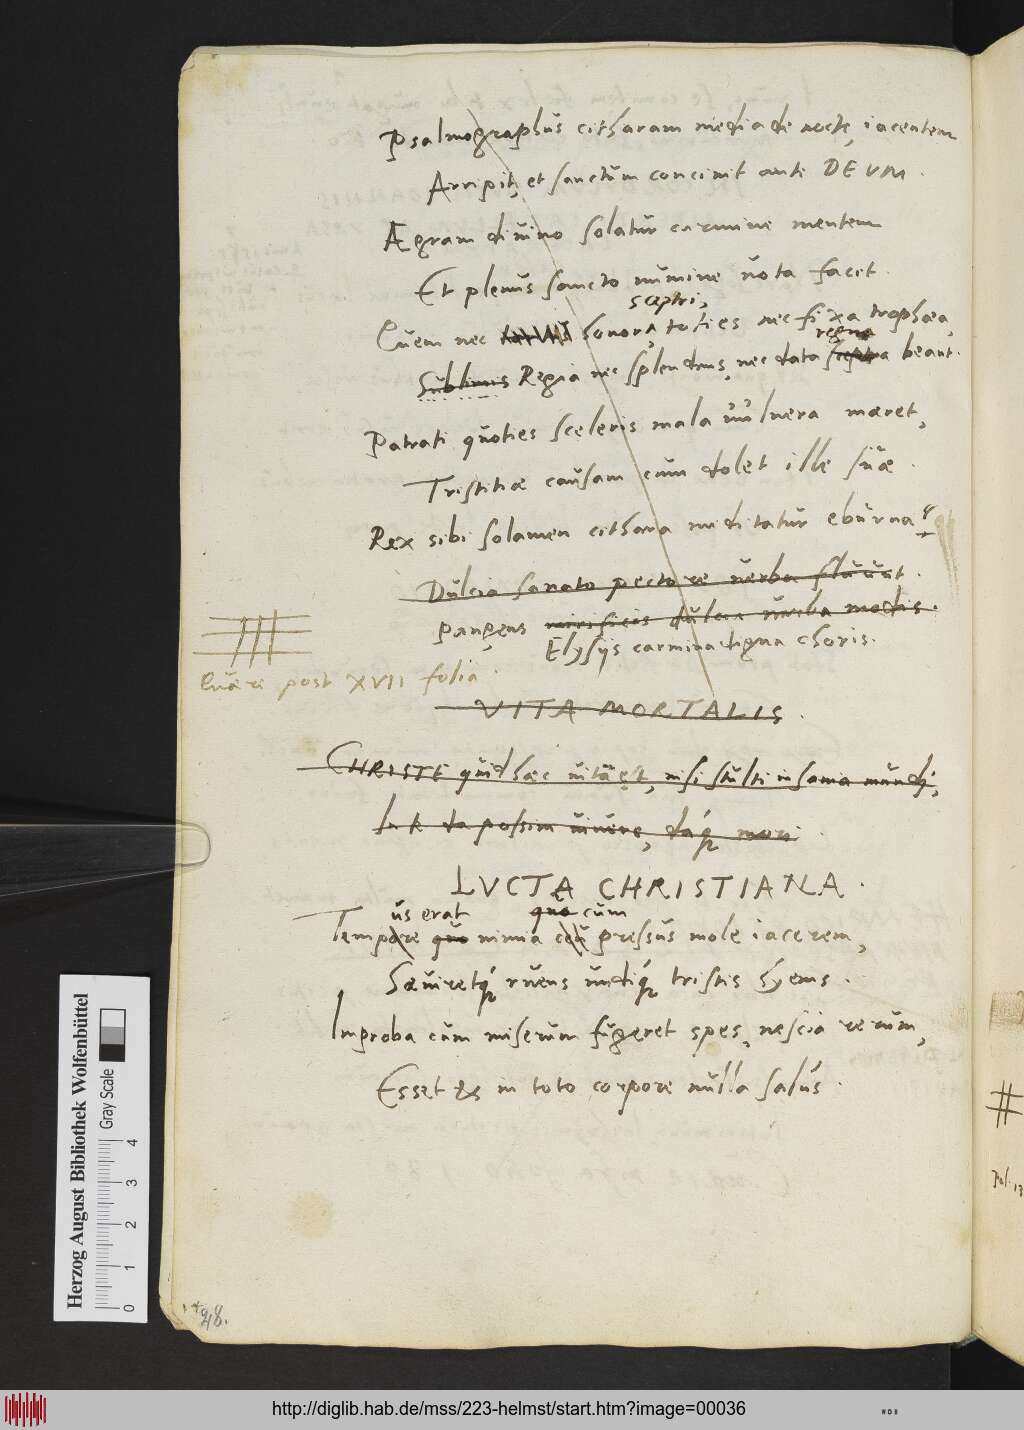 Psalmographus citharam media de nocte, iacentem
Arripit, et sanctum concinit ante DEVM.
Ægram divino solatur carmine mentem
Et plenus sancto numine vota facit.
sceptri,
Quem nec honor, toties nec fixa trophæa,
regna
Sublimis Regia nec splendens, nec data sceptra beant.
Patrati quoties sceleris mala vulnera mæret,
Tristitiæ causam cum dolet ille suæ.
Rex sibi solamen cithara meditatur eburna
Dulcia sanato pectore verba fluunt.
Pangens mirificis dulcia verba modis.
Elysijs carmina digna choris.
Quære post XVII folia.
VITA MORTALIS.
CHRISTE quid hæc vita est, nisi stulti insania mundi,
In te da possim vivere, daq́ue mori.
LVCTA CHRISTIANA.
us erat quo cum
Tempore quo nimia ceu pressus mole iacerem,
Sæviretq́ue ruens undiq́ue tristis hyems.
Improba cum miserum fugeret spes, nescia rerum,
Esset & in toto corpore nulla salus.
28.
Herzog August Bibliothek Wolfenbüttel
Gray Scale
0 1 2 3 4
http://diglib.hab.de/mss/223-helmst/start.htm?image=00036